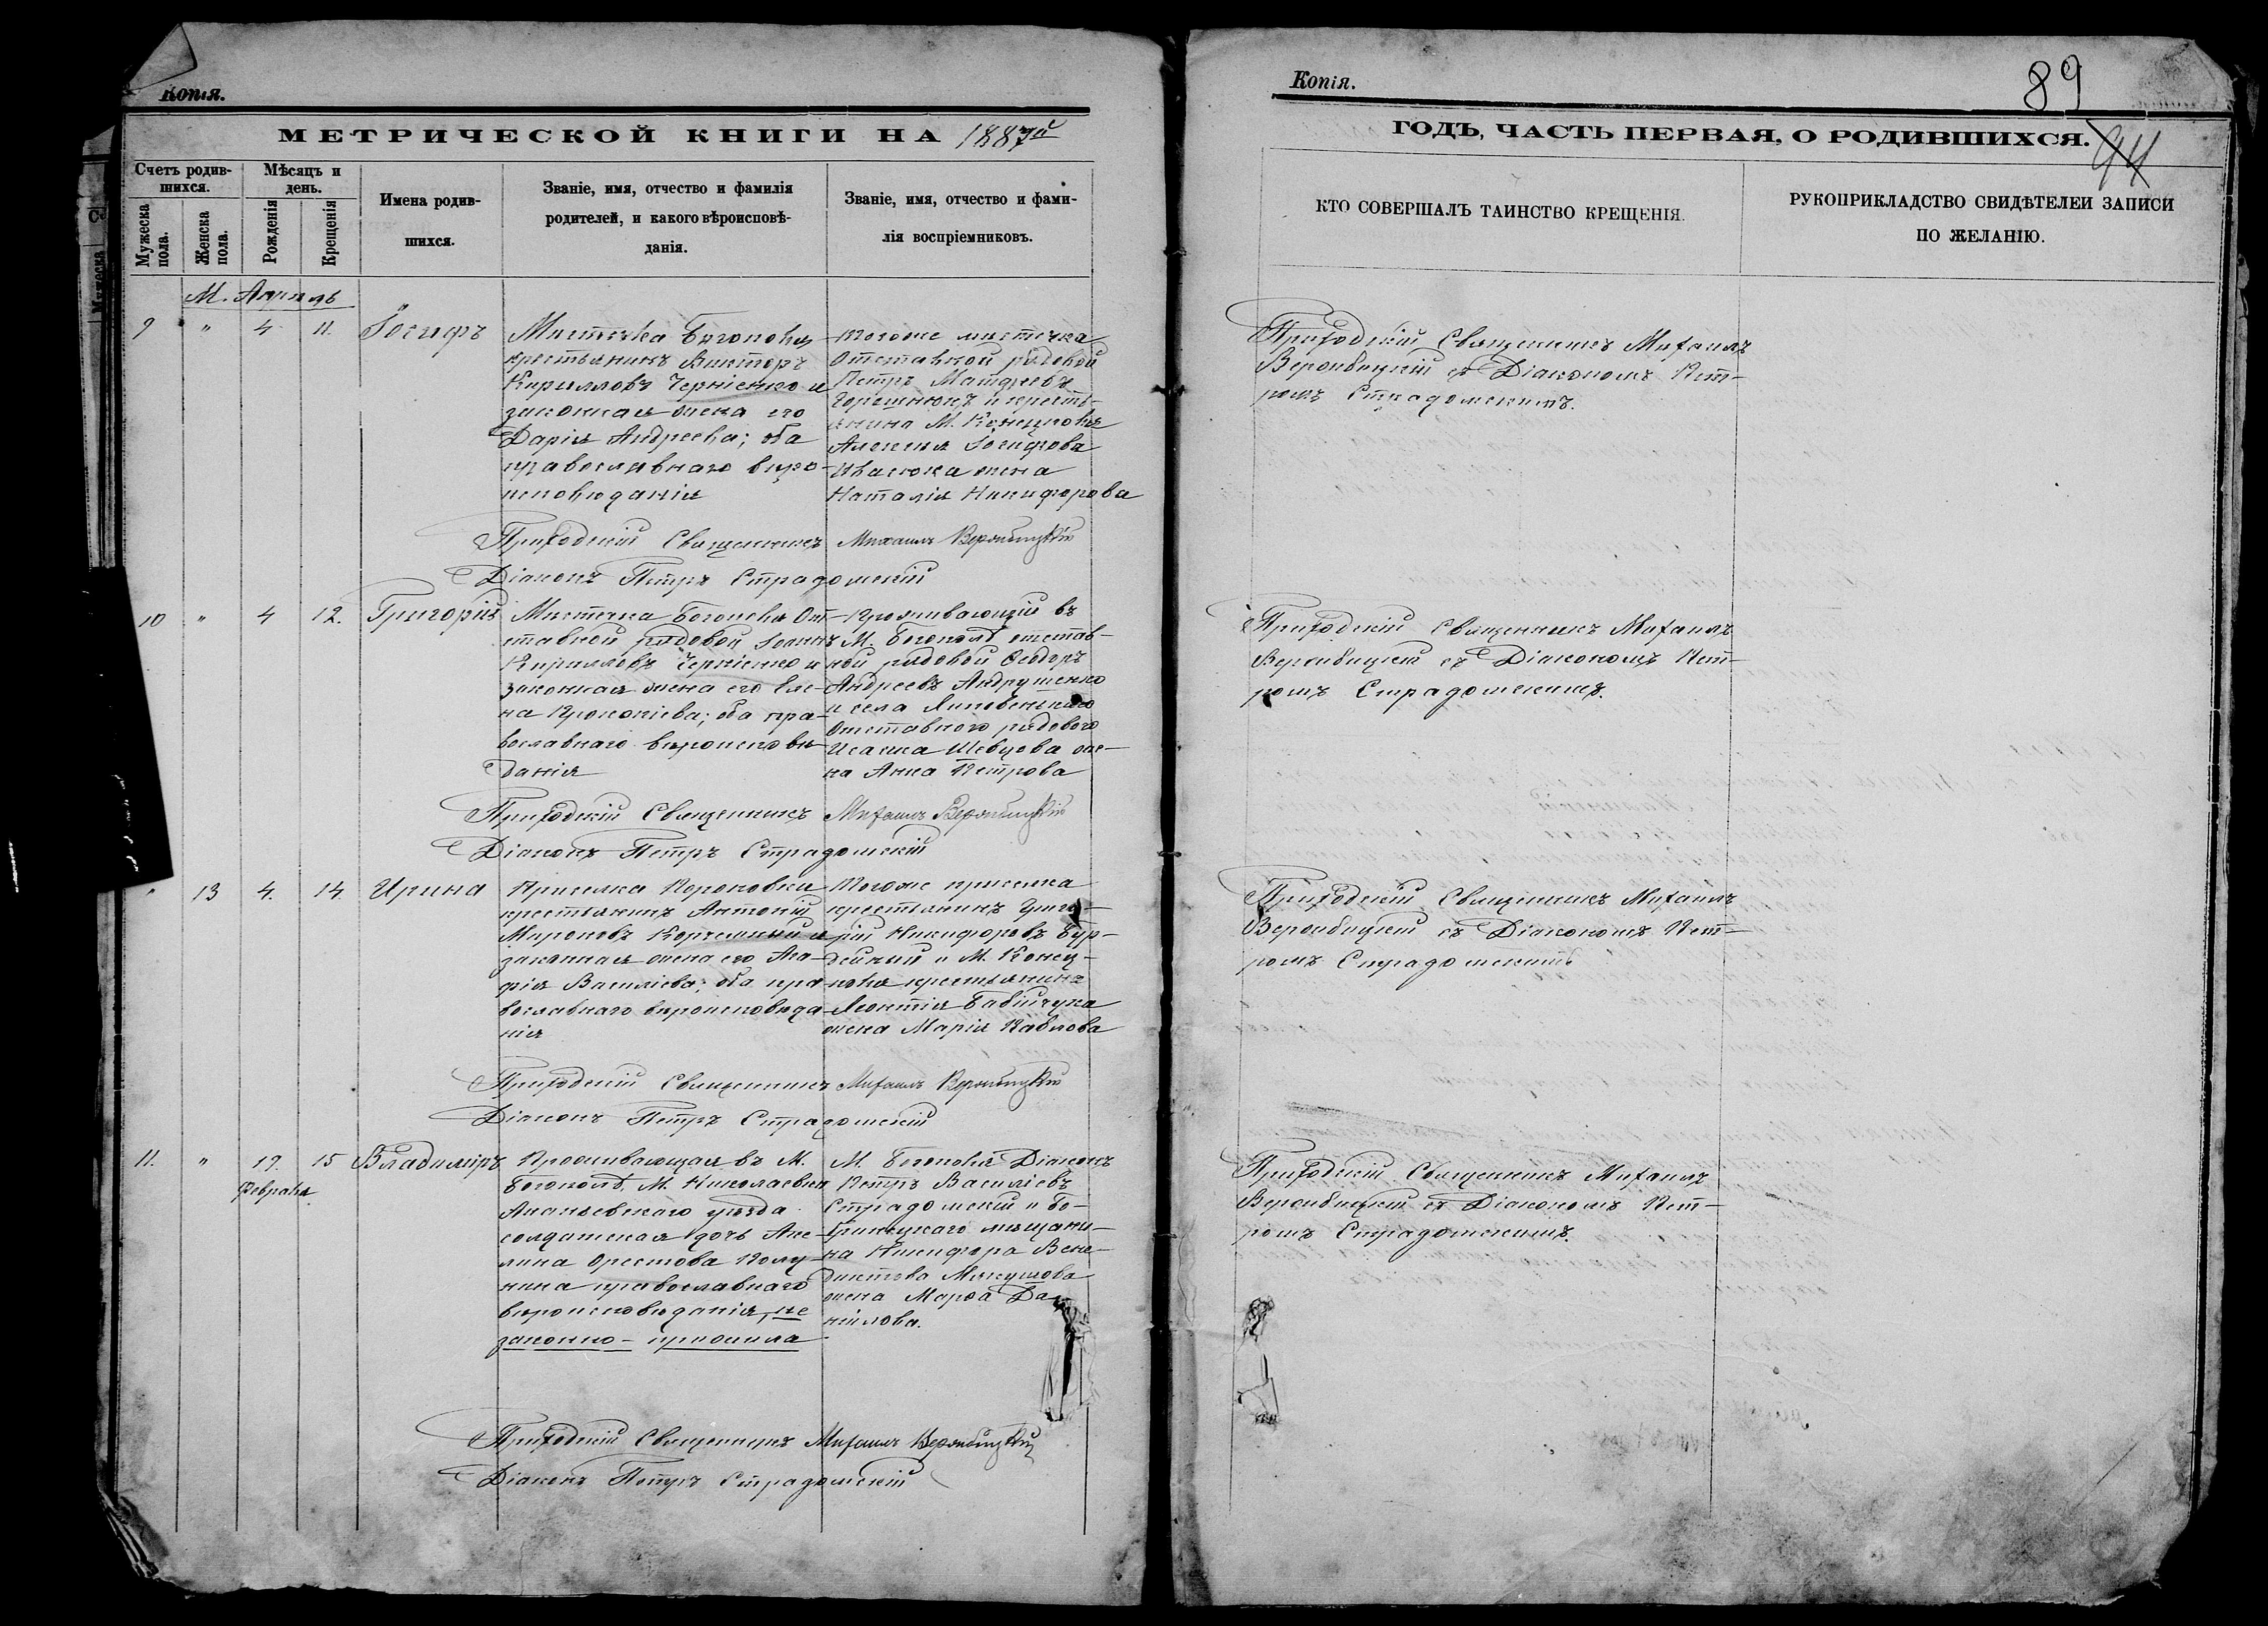 Копія.
МЕТРИЧЕСКОЙ КНИГИ НА 1887й
Счетъ родив-
шихся.
Мужеска
пола.
Женска
пола.
Мѣсяцъ и
день.
Рожденія
Крещенія
Имена родив-
шихся.
Званіе, имя, отчество и фамилія
родителей, и какого вѣроисповѣ-
данія.
Званіе, имя, отчество и фами-
лія воспріемниковъ.
М. Апрѣль
9 " 4 11. Іосифъ
Мѣстечка Богополя
крестьянинъ Викторъ
Кирилловъ Черніенко и
законная жена его
Дарія Андреева; оба
православнаго вѣро-
исповѣданія
Тогоже мѣстечка
Отставной рядовой
Петръ Матфеевъ
и кресть-
янина М. Конецполя
Алексея Іосифова
Ивасюка жена
Наталія Никифорова
Приходскій Священникъ Михаилъ Вербицкій
Діаконъ Петръ Страдомскій
10 " 4 12. Григорій
Мѣстечка Богополя От-
ставной рядовой Іоаннъ
Кирилловъ Черніенко и
законная жена его Еле-
на Прокопіева; оба пра-
вославнаго вѣроисповѣ-
данія
Проживающій въ
М. Богополѣ отстав-
ной рядовой Ѳеодоръ
Андреевъ Андрушенко
и села Липовенькаго
Отставного рядового
Исаіа Шевцова же-
на Анна Петрова
Приходскій Священникъ Михаилъ Вербицкій
Діаконъ Петръ Страдомскій
" 13 4. 14. Ирина
Приселка
крестьянинъ Антоній
Мироновъ и
законная жена его Ага-
фія Василіева; оба пра-
вославнаго вѣроисповѣда-
нія
Тогоже приселка
крестьянинъ Григо-
рій Никифоровъ Бур-
дейный и М. Конец-
поля крестьянина
Леонтія Бабійчука
жена Марія Павлова
Приходскій Священникъ Михаилъ Вербицкій
Діаконъ Петръ Страдомскій
11. " 19. 15 Владиміръ
Февраля
Проживающая въ М.
Богополѣ, М. Николаевки
Ананьевскаго уѣзда
солдатская дочь Аке-
лина Орестова
православнаго
вѣроисповѣданія, не
законно-прижила
М. Богополя Діаконъ
Петръ Василіевъ
Страдомскій и Бо-
бринецкаго мѣщани-
на Никифора Вене-
диктова
жена Марѳа Да-
ніилова.
Приходскій Священникъ Михаилъ Вербицкій
Діаконъ Петръ Страдомскій
Копія.
89
94
ГОДЪ, ЧАСТЬ ПЕРВАЯ, О РОДИВШИХСЯ.
КТО СОВЕРШАЛЪ ТАИНСТВО КРЕЩЕНІЯ.
РУКОПРИКЛАДСТВО СВИДѢТЕЛЕЙ ЗАПИСИ
ПО ЖЕЛАНІЮ.
Приходскій Священникъ Михаилъ
Вербицкій съ Діакономъ Пет-
ромъ Страдомскимъ.
Приходскій Священникъ Михаилъ
Вербицкій съ Діакономъ Пет-
ромъ Страдомскимъ.
Приходскій Священникъ Михаилъ
Вербицкій съ Діакономъ Пет-
ромъ Страдомскимъ
Приходскій Священникъ Михаилъ
Вербицкій съ Діакономъ Пет-
ромъ Страдомскимъ.